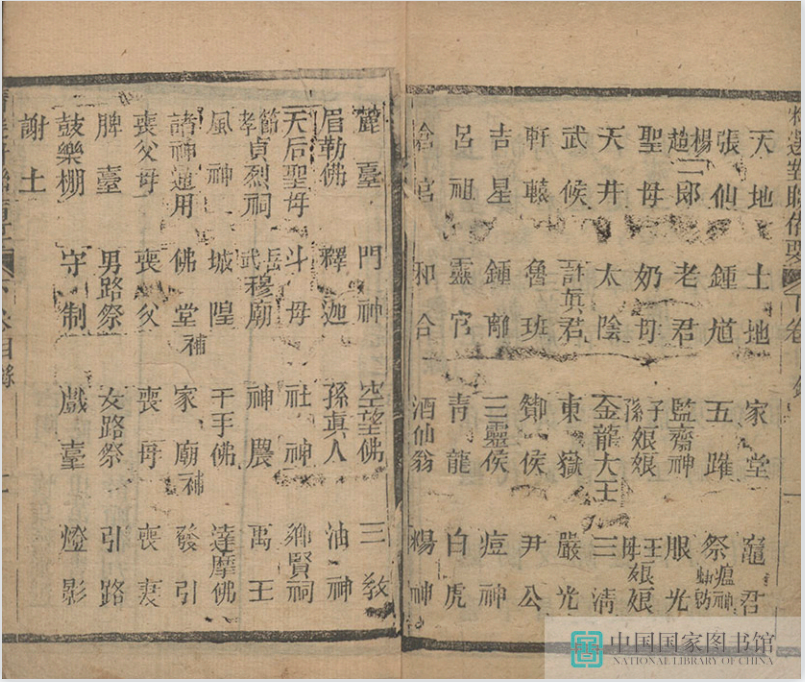 選對聯備要 下卷
天地 土地 家堂 竈君
張仙 鍾馗 五 祭瘟神
楊趙二郎 老君 監齋神 服光
聖母 奶母 子孫娘娘 王母娘娘
天井 太陰 金龍大王 三清
武侯 許眞君 東嶽 嚴光
軒轅 魯班 侯 尹公
吉星 鍾離 三靈侯 痘神
呂祖 靈官 靑龍 白虎
倉官 和合 酒仙翁 楊神
臺 門神 空望佛 三敎
眉勒佛 釋迦 孫眞人 油神
天后聖母 斗母 社神 鄉賢祠
節孝貞烈祠 岳武穆廟 神農 禹王
風神 城隍 千手佛 達摩佛
諸神通用 佛堂補 家廟補 發引
喪父母 喪父 喪母 喪妻
脾臺 男路祭 女路祭 引路
鼓樂棚 守制 戲臺 燈影
謝土
中国国家图书馆
NATIONAL LIBRARY OF CHINA